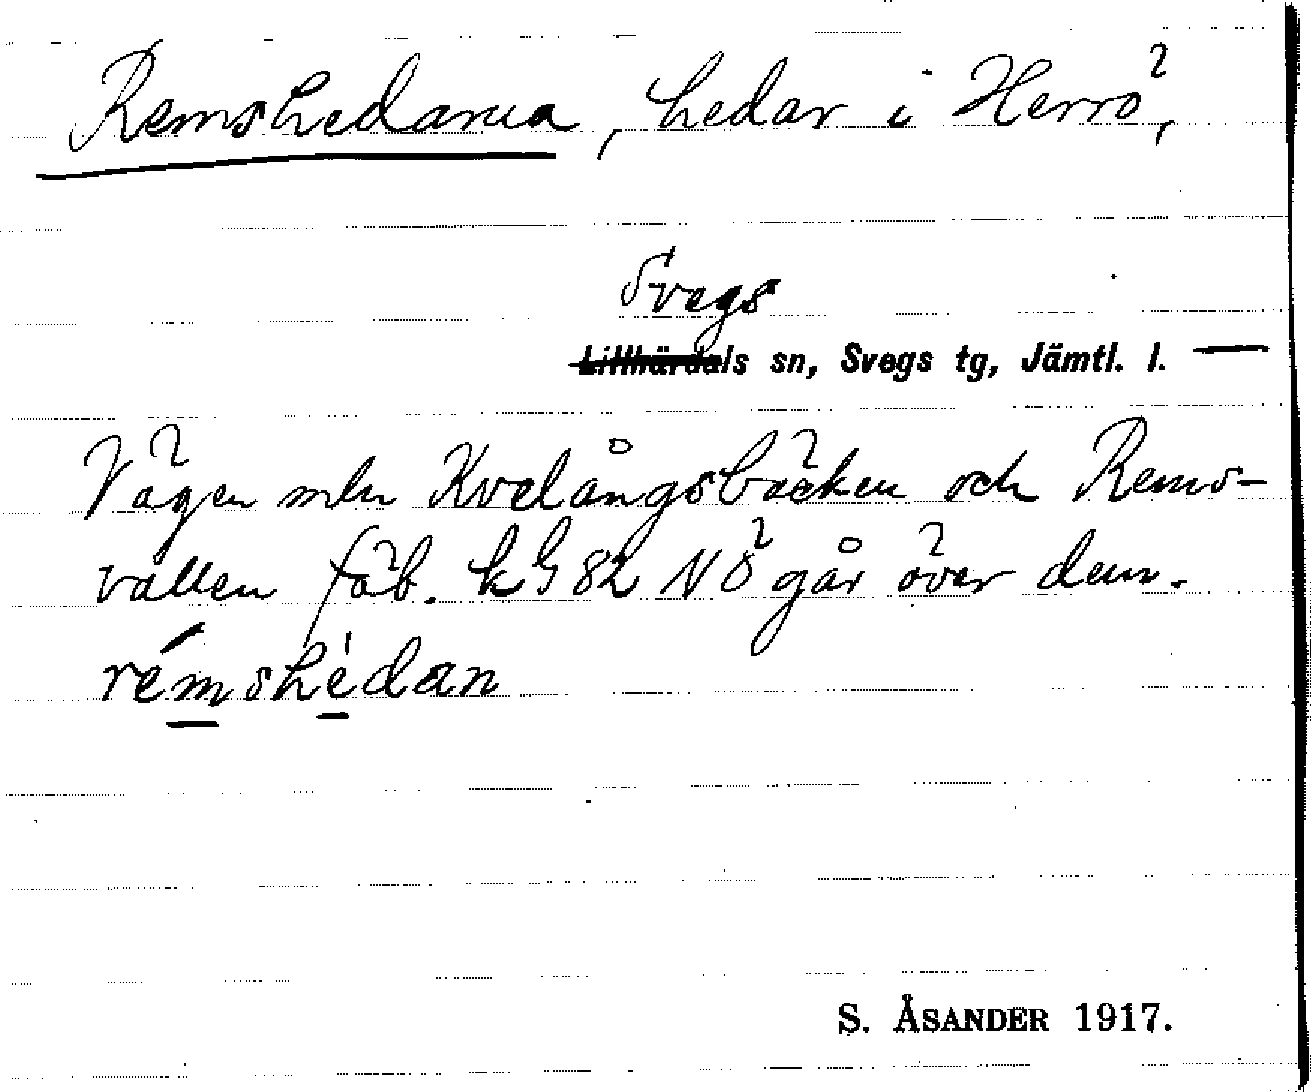 Remshedarna, hedar i Herrö,
Svegs
Lillhärdals sn, Svegs tg, Jämtl. l. —
Vägen mln Kvelångsbäcken och Rems-
vallen fäb. kG 82 NÖ går över dem.
rémshèdan
S. ÅSANDER 1917.